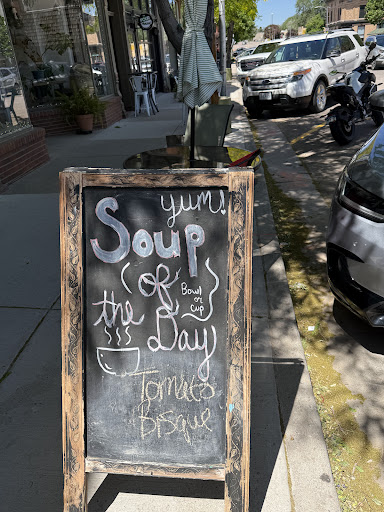 yum!
Soup
(of)
Bowl
or
Cup
the
Day
Tomato
Bisque